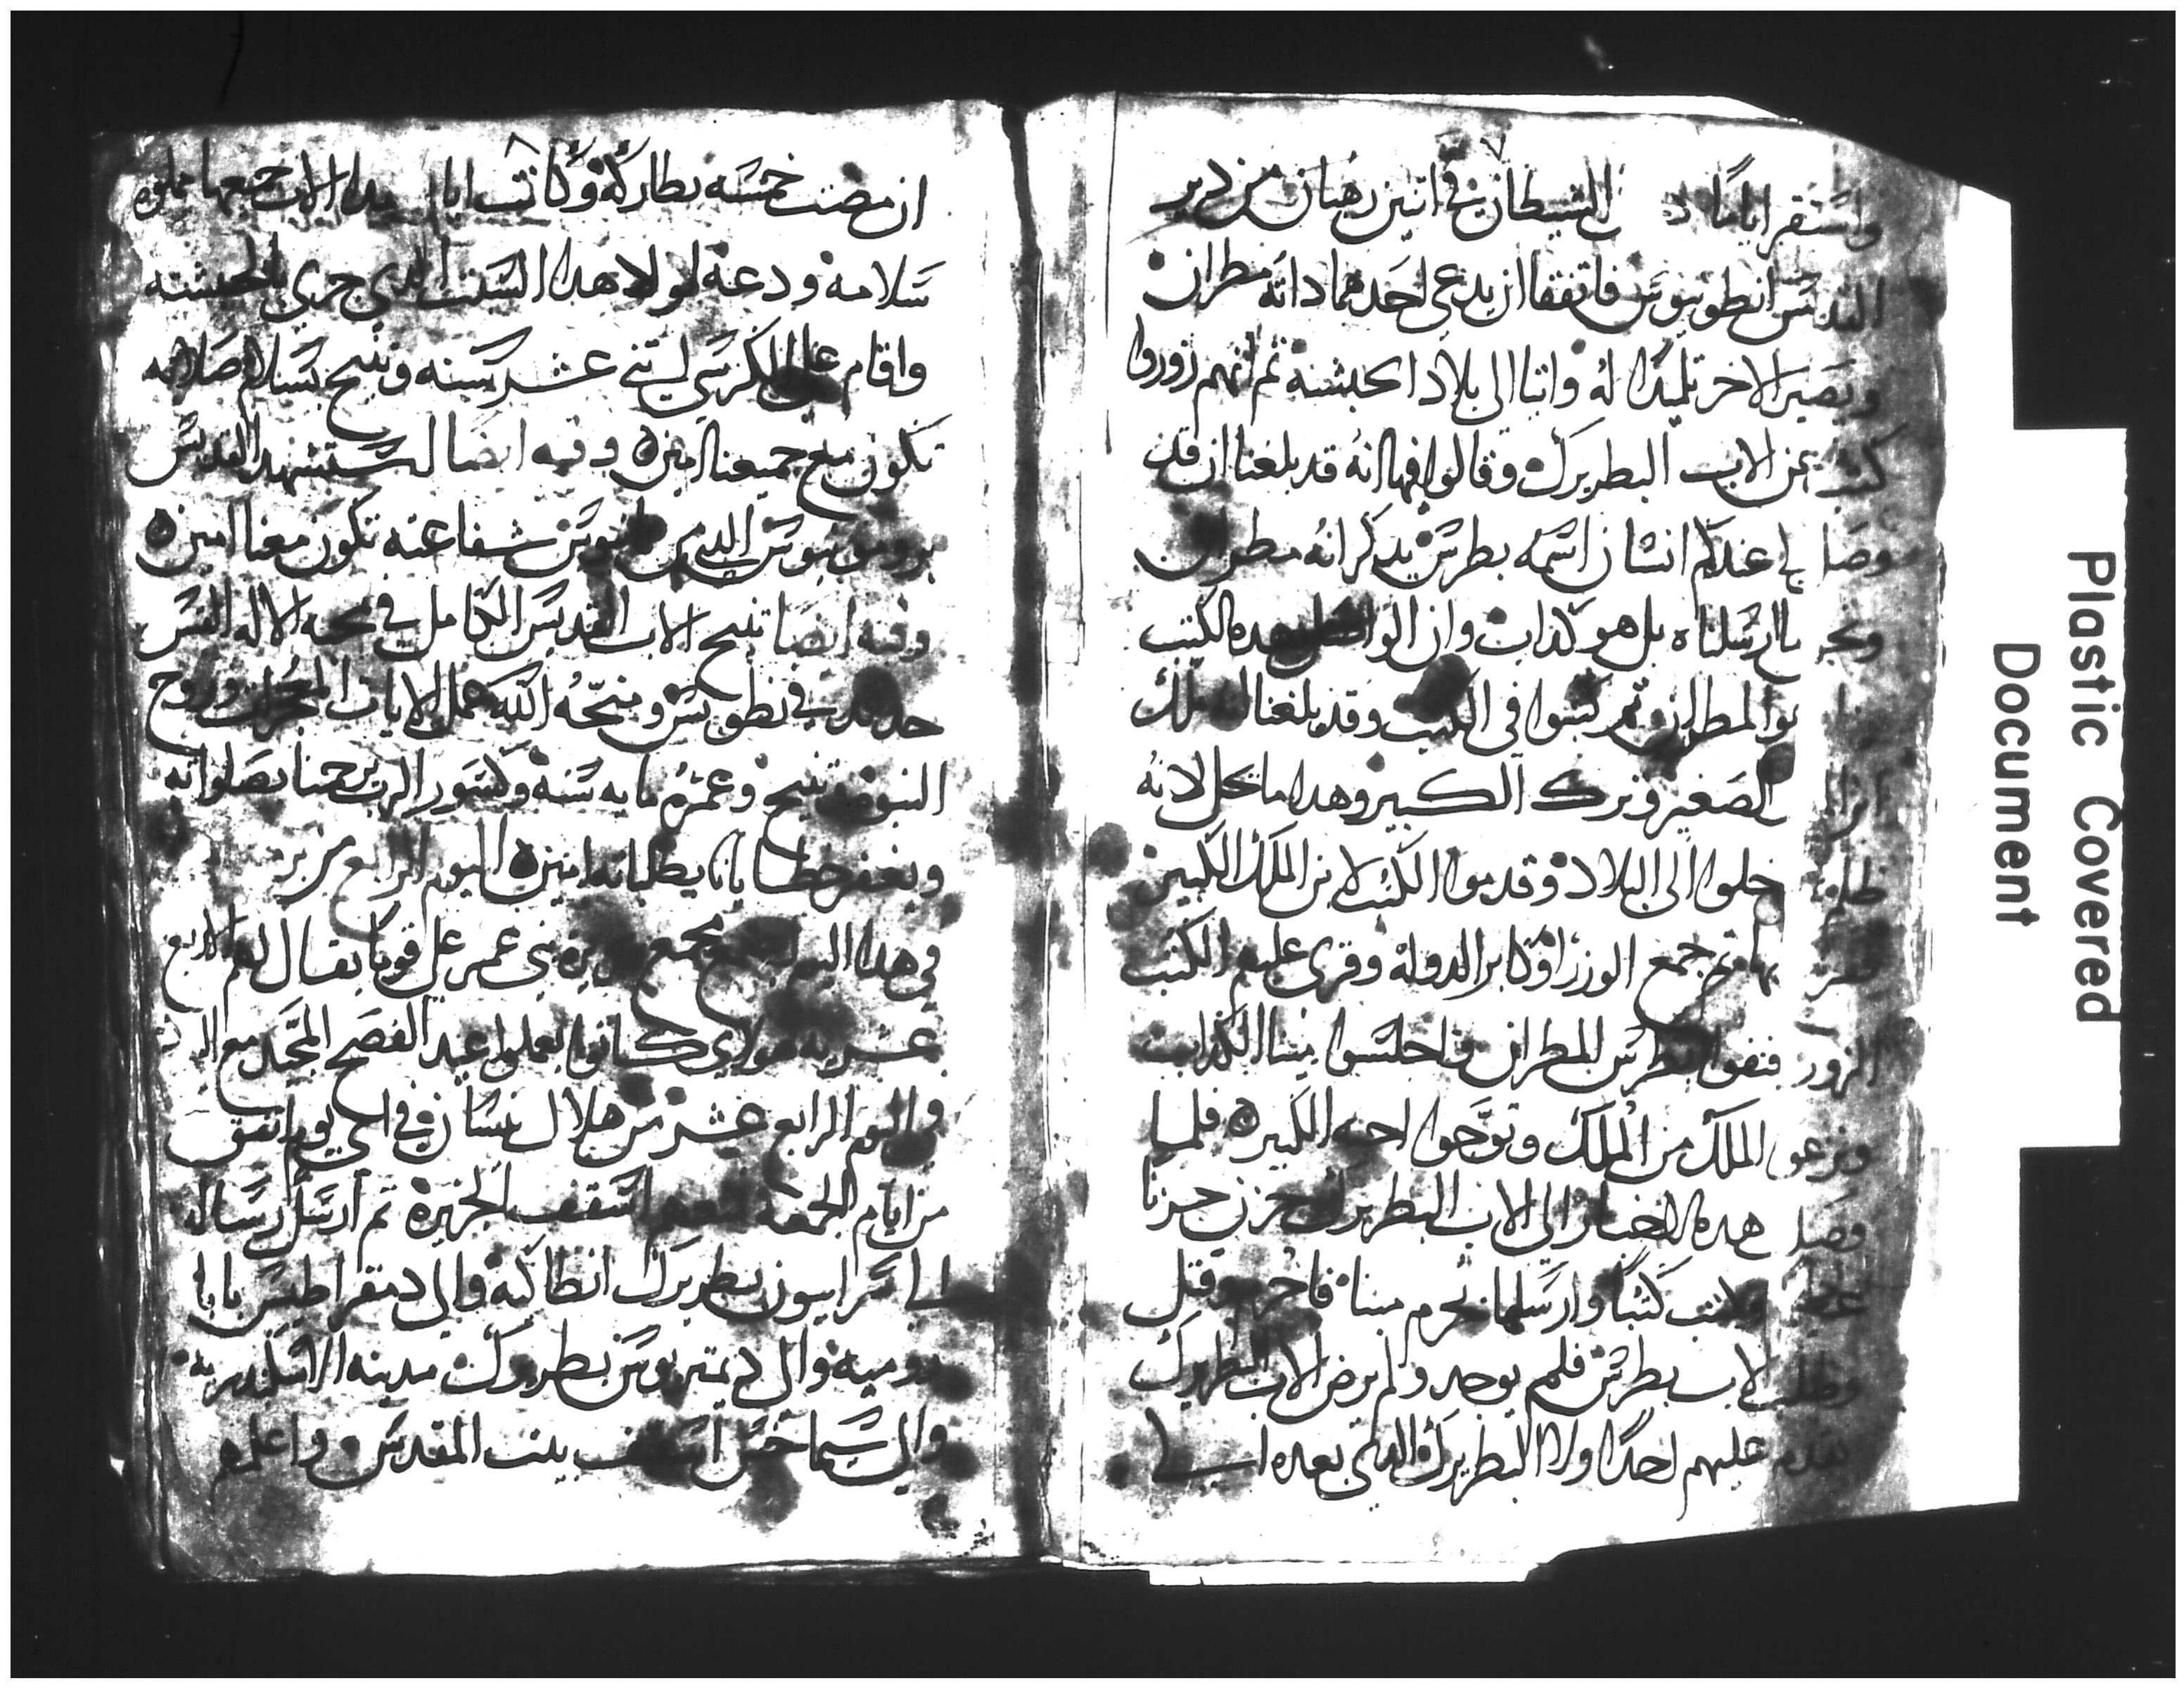 ٧
واستقر اياما الشيطان في اتنين رهبان من دير
القديس انطونيوس فاتفقا ان يدعي احدهما داته مطران
ويصير الاخر تلميدا له واتيا الى بلاد الحبشه ثم انهم زوروا
كتب عن الاب البطريرك وقالوا فيها انه قد بلغنا ان قد
وصل الي عندكم انسان اسمه بطرس يدكر انه مطران
ما ارسلناه بل هو كداب وان الواصل بهده الكتب
هو المطران ثم كتبوا في الكتب وقد بلغنا ان ملك
الصغير وترك الكبير وهدا ما يحل لانه
دخلوا الى البلاد وقدموا الكتب لابن الملك الكبير
بها ثم جمع الوزرا وكابر الدوله وقرى عليهم الكتب
الزور فنفوا بطرس المطران واجلسوا مينا الكداب
ونزعوا الملك من الملك وتوجوا اخيه الكبير فلما
وصل هده الاخبار الى الاب البطريرك حزن حزنا
عظيما وكتب كتبا وارسلها بحرم مينا فاخرجوه وقتل
وطلب الاب بطرس فلم يوجد ولم يرض الاب البطريرك
يقدم عليهم احدا ولا البطريرك الدي بعده الي
٨
ان مضت خمسه بطاركه وكانت ايام هدا الاب جميعها مملوه
سلامه ودعه لولا هدا السبب الدي جري بالحبشه
واقام على الكرسي اتني عشر سنه وتنيح بسلام صلاته
تكون مع جميعنا امين وفيه ايضا استشهد القديس
شفاعته تكون معنا امين
وفيه ايضا تنيح الاب القديس الكامل في محبه الاله القس
ومنحه الله عمل الايات المعجزات وروح
النبوه وتنيح وعمره مايه سنه وكسور الرب يرحمنا بصلواته
ويغفر خطايانا بطلباته امين اليوم الرابع من
في هدا اليوم اجتمع مجمع بجزيره بني عمر على قوما يقال لهم الاربع
عشريه هولاي كانوا يعملوا عيد الفصح الممجد مع اليهود
واليوم الرابع عشر من هلال نيسان في اي يوم اتفق
من ايام الجمعه اسقف الجزيره ثم ارسل رساله
الي سرابيون بطريرك انطاكيه والي دمقراطيس بابا
روميه والي ديمتريوس بطريرك مدينه الاسكندريه
والي سيماخس اسقف بيت المقدس واعلمهم
Plastic Covered
Document